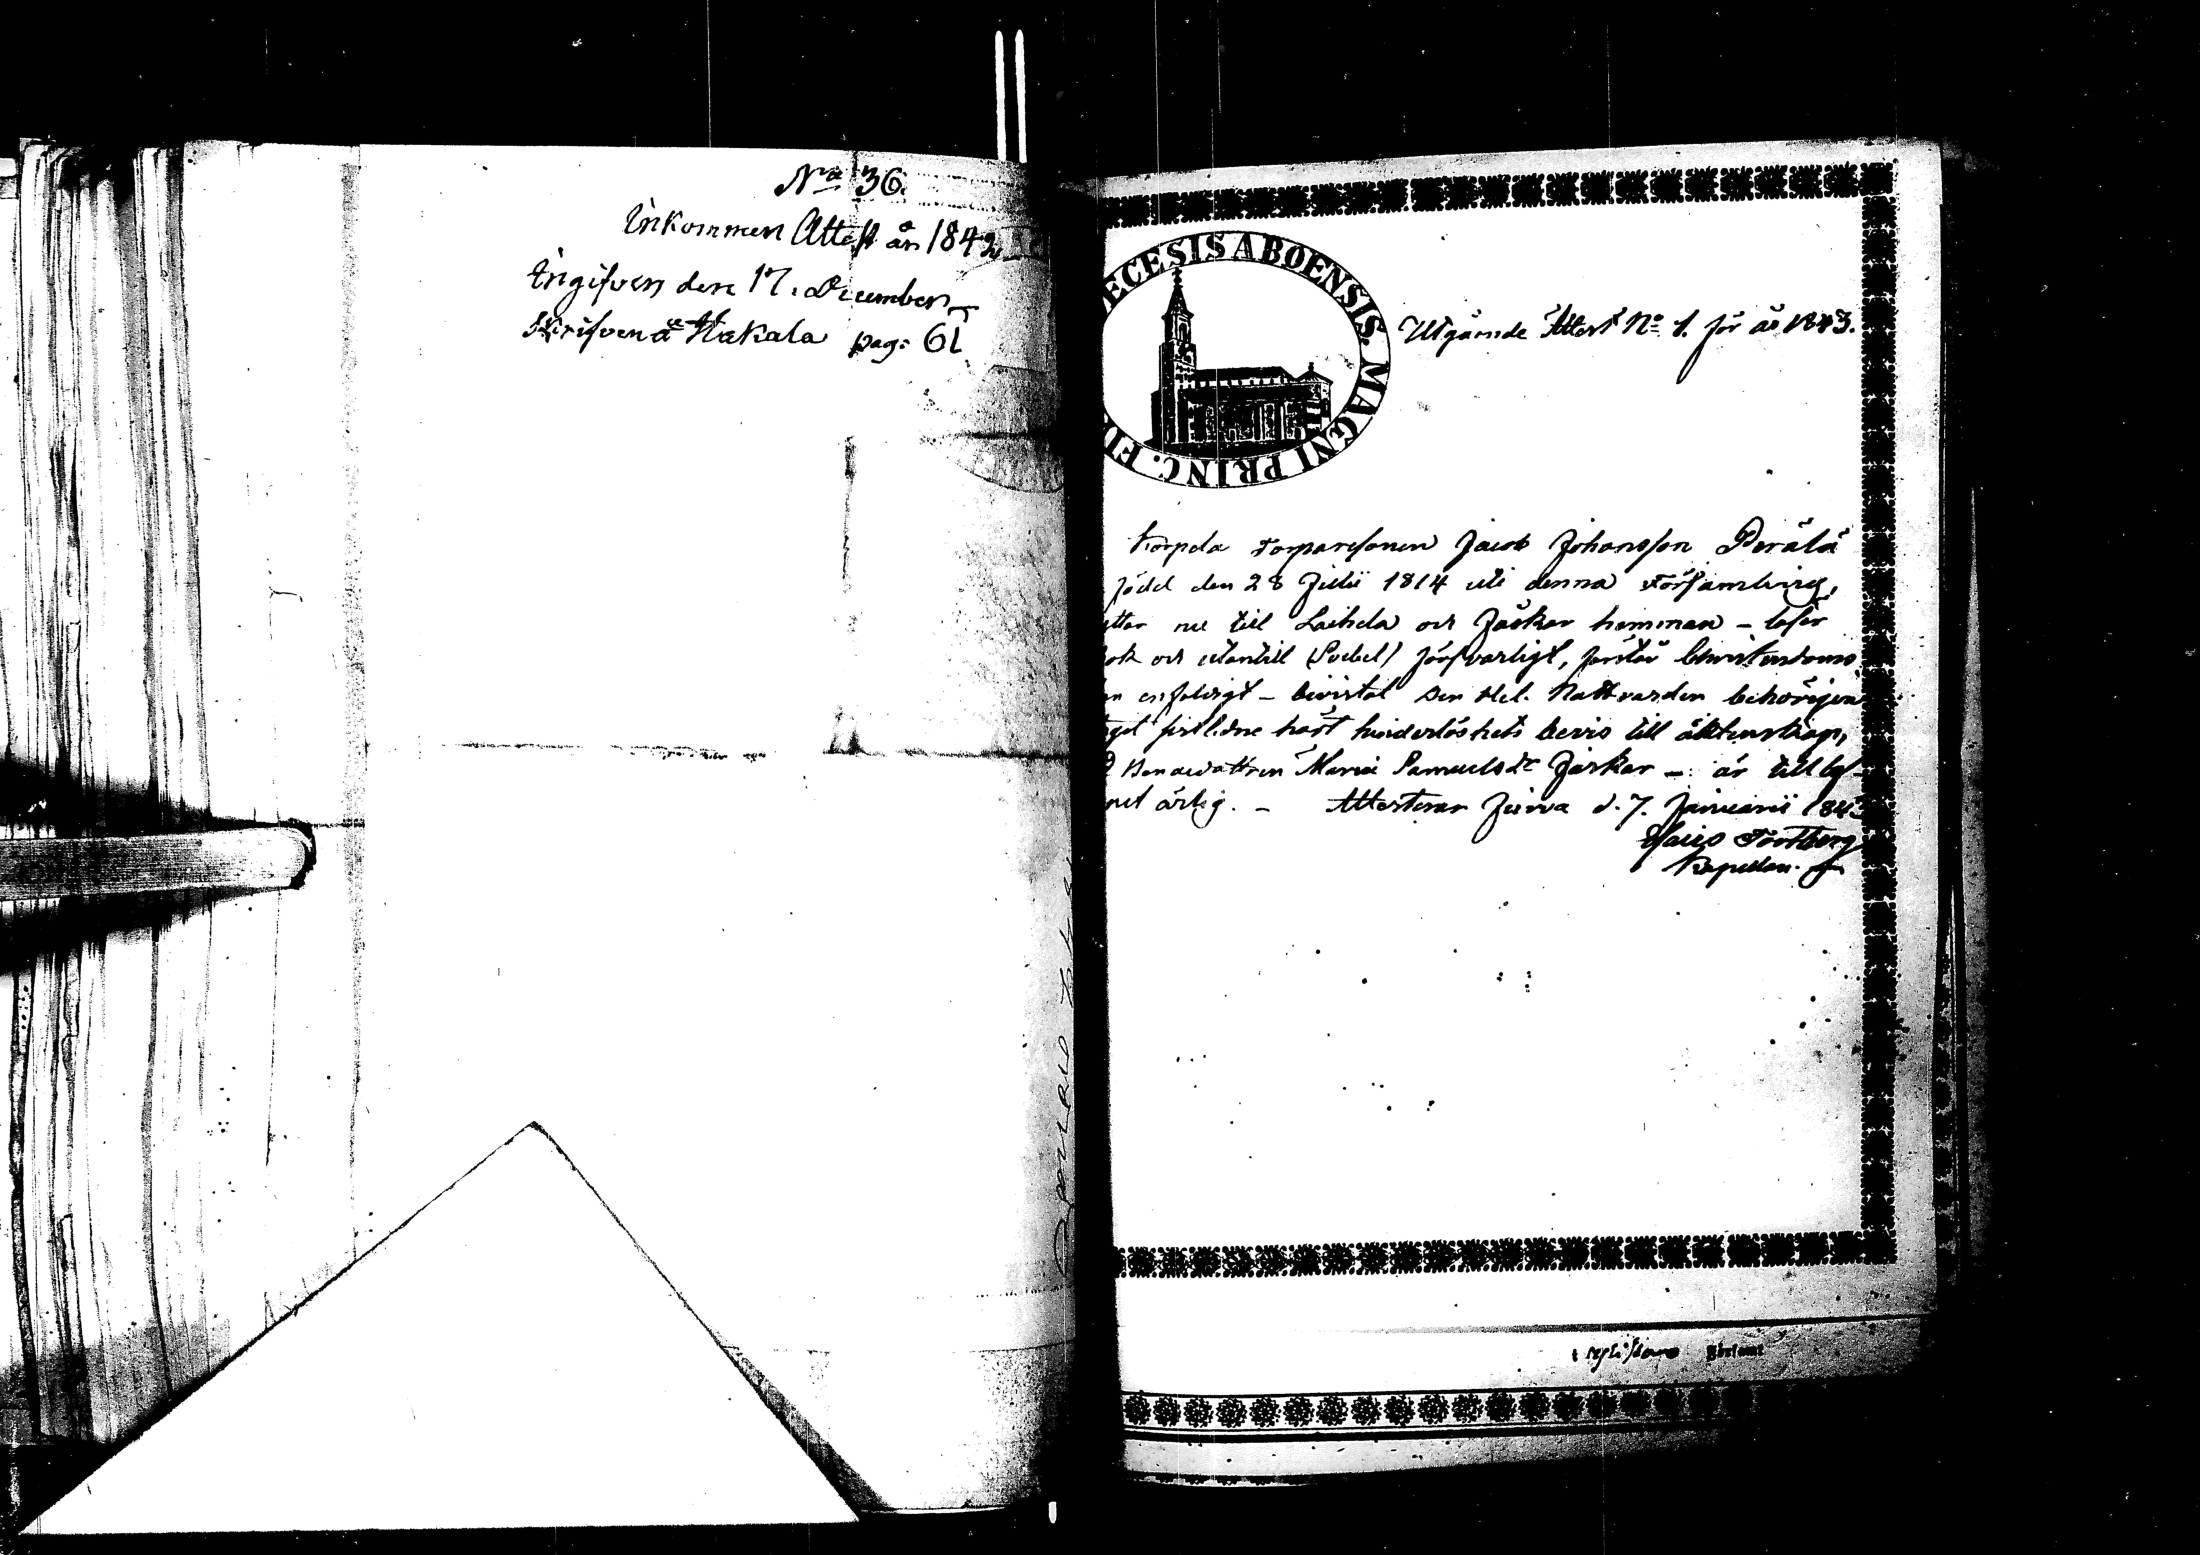 No 36.
Inkommen Attest år 1842
Ingifven den 17. December
Skrifven å Hakala pag: 61
ECESIS ABOENSIS. MAGNI PRINC. FI
Utgående Attest No 1. för år 1843.
Korpela Torparesonen Jacob Johansson Perälä
född den 28 Julii 1814 uti denna Församling,
ttar nu till Laihela och Jäskar hemman – läser
bok och utantill försvarligt, förstår Christendoms
enfaldigt – bivistat den Hel. Nattvarden behörigen
get sistledne höst hinderlöshets bevis till äktenskap,
Bondedottren Maria Samuelsdr Jäskar – är till lef-
net ärlig. – Attesterar Jurva d. 7. Januarii 1843
Esaias Tortberg
Kapellan.